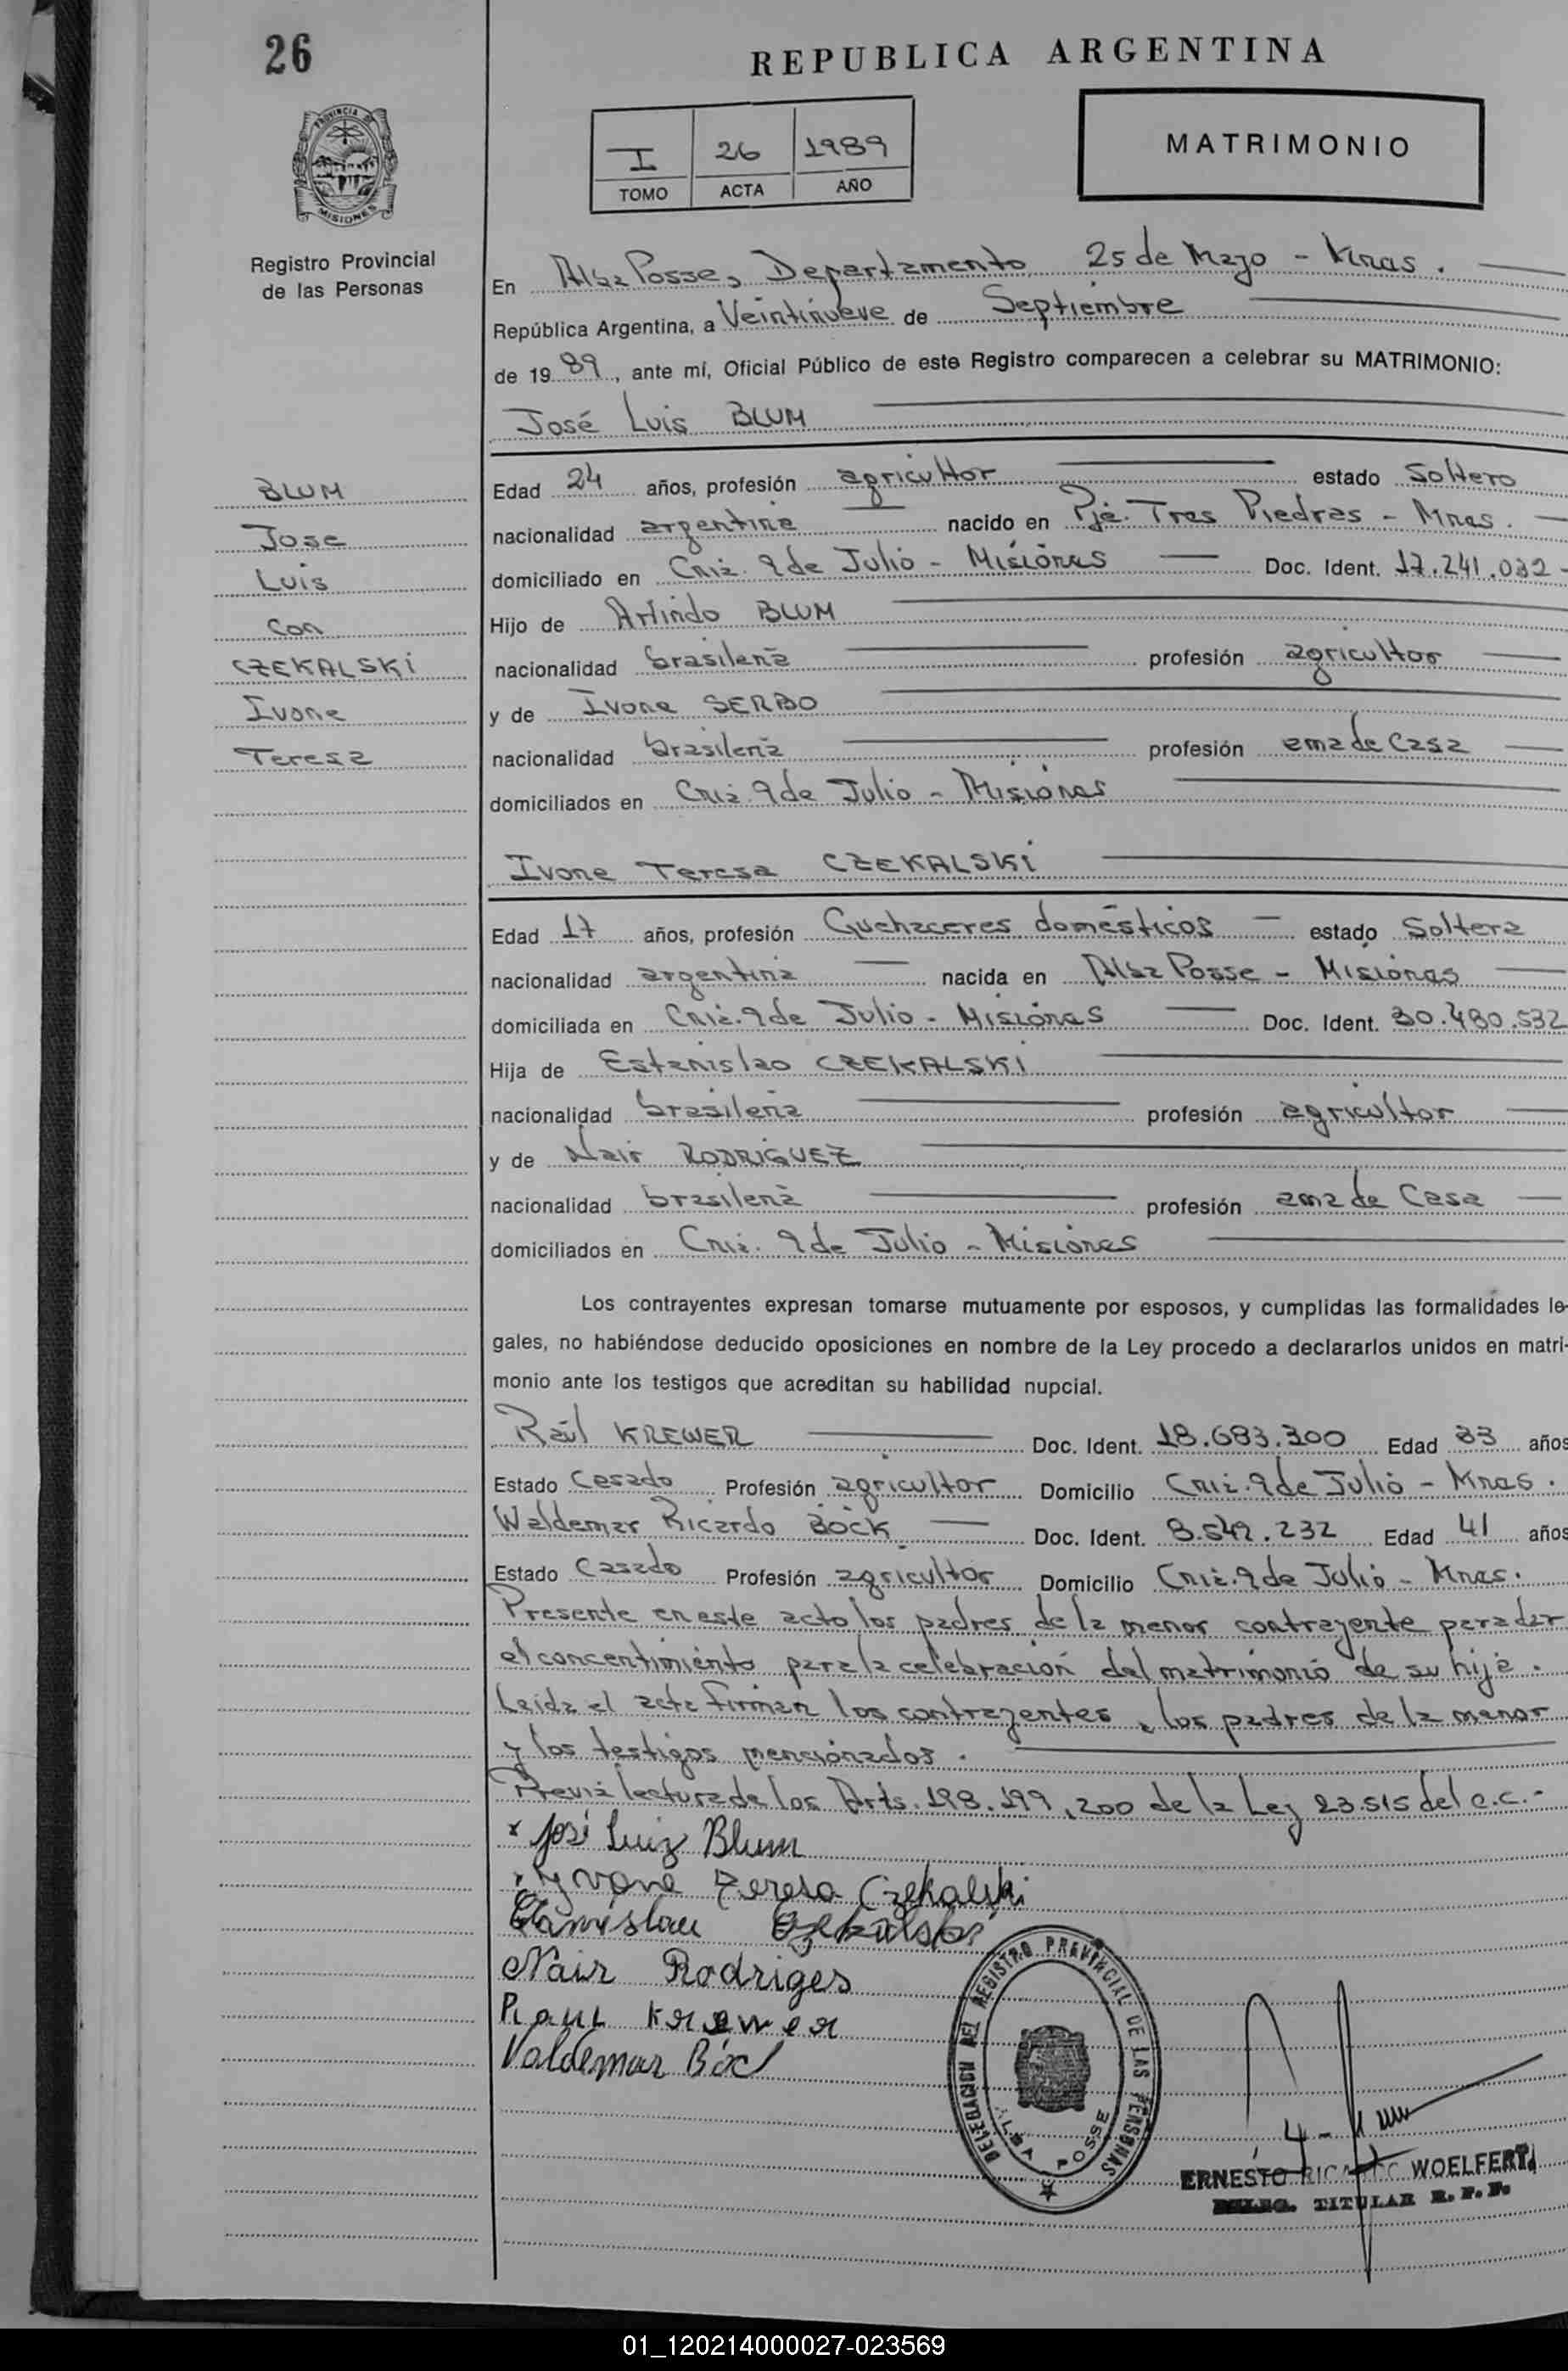 26
REPUBLICA ARGENTINA
PROVINCIA DE
MISIONES
I 26 1989
TOMO ACTA AÑO
MATRIMONIO
Registro Provincial
de las Personas
En Alba Posse, Departamento 25 de Mayo - Mnes.
República Argentina, a Veintinueve de Septiembre
de 1989, ante mí, Oficial Público de este Registro comparecen a celebrar su MATRIMONIO:
José Luis BLUM
BLUM
Jose
Luis
Con
CZEKALSKI
Ivone
Teresa
Edad 24 años, profesión agricultor estado Soltero
nacionalidad argentina nacido en Pje. Tres Piedras - Mnes.
domiciliado en Cnia. 9 de Julio - Misiones Doc. Ident. 17.241.032
Hijo de Arlindo BLUM
nacionalidad brasileña profesión agricultor
y de Ivone SERBO
nacionalidad brasileña profesión ama de Casa
domiciliados en Cnia. 9 de Julio - Misiones
Ivone Teresa CZEKALSKI
Edad 17 años, profesión Quehaceres domésticos estado Soltera
nacionalidad argentina nacida en Alba Posse - Misiones
domiciliada en Cnia. 9 de Julio - Misiones Doc. Ident. 30.480.532
Hija de Estanislao CZEKALSKI
nacionalidad brasileña profesión agricultor
y de Nair RODRIGUEZ
nacionalidad brasileña profesión ama de Casa
domiciliados en Cnia. 9 de Julio - Misiones
Los contrayentes expresan tomarse mutuamente por esposos, y cumplidas las formalidades le-
gales, no habiéndose deducido oposiciones en nombre de la Ley procedo a declararlos unidos en matri-
monio ante los testigos que acreditan su habilidad nupcial.
Raúl KREWER Doc. Ident. 18.683.300 Edad 33 años
Estado Casado Profesión agricultor Domicilio Cnia. 9 de Julio - Mnes.
Waldemar Ricardo BÖCK Doc. Ident. 8.542.232 Edad 41 años
Estado Casado Profesión agricultor Domicilio Cnia. 9 de Julio - Mnes.
Presente en este acto los padres de la menor contrayente para dar
el concentimiento para la celebración del matrimonio de su hija.
Leída el acta firman los contrayentes, los padres de la menor
y los testigos mencionados.
Previa lectura de los Arts. 198. 199, 200 de la Ley 23.515 del c.c.-
x José Luiz Blum
x Yvone Teresa Czekalski
Estanislau Czekalski
Nair Rodriges
Raul Krewer
Valdemar Böck
DELEGACION DEL REGISTRO PROVINCIAL DE LAS PERSONAS
ALBA POSSE
ERNESTO RICARDO WOELFERT
DELEG. TITULAR R. P. P.
01_120214000027-023569